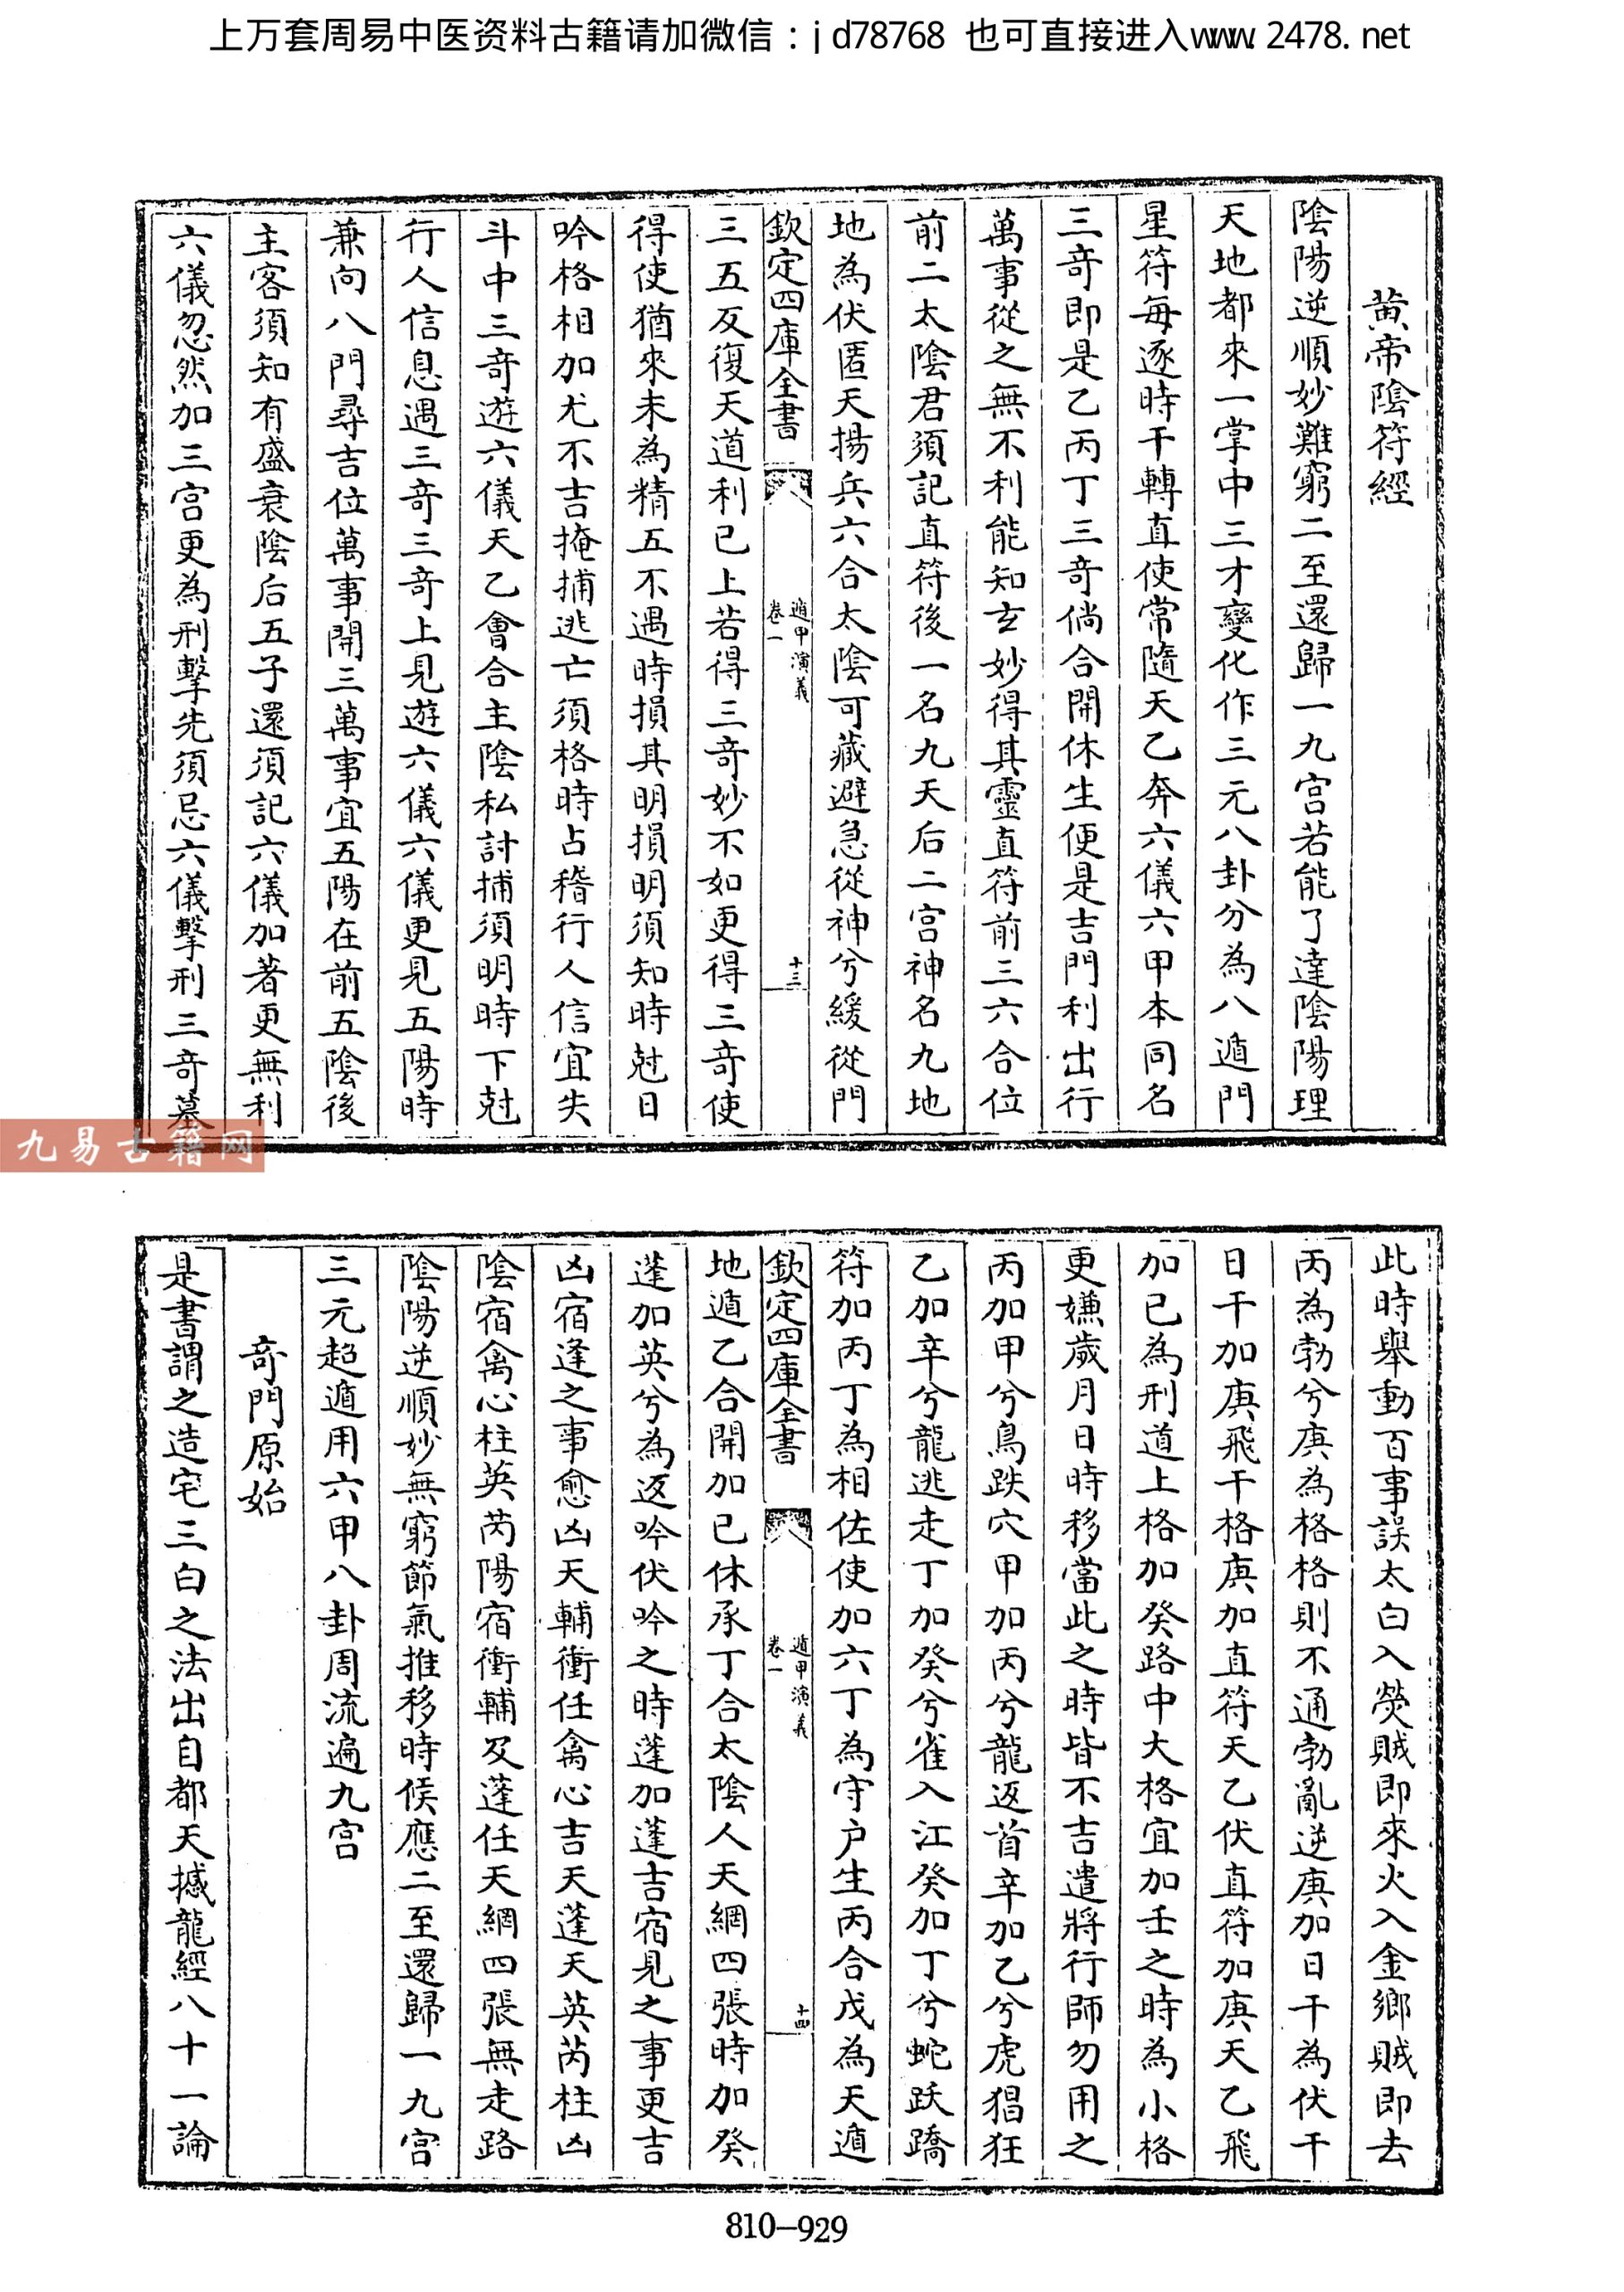 上万套周易中医资料古籍请加微信：jd78768 也可直接进入www.2478.net
黃帝陰符經
陰陽逆順妙難窮二至還歸一九宮若能了達陰陽理
天地都來一掌中三才變化作三元八卦分為八遁門
星符每逐時干轉直使常隨天乙奔六儀六甲本同名
三奇即是乙丙丁三奇倘合開休生便是吉門利出行
萬事從之無不利能知玄妙得其靈直符前三六合位
前二太陰君須記直符後一名九天后二宮神名九地
地為伏匿天揚兵六合太陰可藏避急從神兮緩從門
欽定四庫全書
遁甲演義
卷一
十三
三五反復天道利已上若得三奇妙不如更得三奇使
得使猶來未為精五不遇時損其明損明須知時尅日
吟格相加尤不吉掩捕逃亡須格時占稽行人信宜失
斗中三奇遊六儀天乙會合主陰私討捕須明時下尅
行人信息遇三奇三奇上見遊六儀六儀更見五陽時
兼向八門尋吉位萬事開三萬事宜五陽在前五陰後
主客須知有盛衰陰后五子還須記六儀加著更無利
六儀忽然加三宮更為刑擊先須忌六儀擊刑三奇墓
九易古籍网
此時舉動百事誤太白入熒賊即來火入金鄉賊即去
丙為勃兮庚為格格則不通勃亂逆庚加日干為伏干
日干加庚飛干格庚加直符天乙伏直符加庚天乙飛
加已為刑道上格加癸路中大格宜加壬之時為小格
更嫌歲月日時移當此之時皆不吉遣將行師勿用之
丙加甲兮鳥跌穴甲加丙兮龍返首辛加乙兮虎猖狂
乙加辛兮龍逃走丁加癸兮雀入江癸加丁兮蛇跃蹻
符加丙丁為相佐使加六丁為守户生丙合戊為天遁
欽定四庫全書
遁甲演義
卷一
十四
地遁乙合開加已休承丁合太陰人天網四張時加癸
蓬加英兮為返吟伏吟之時蓬加蓬吉宿見之事更吉
凶宿逢之事愈凶天輔衝任禽心吉天蓬天英芮柱凶
陰宿禽心柱英芮陽宿衝輔及蓬任天網四張無走路
陰陽逆順妙無窮節氣推移時候應二至還歸一九宮
三元超遁用六甲八卦周流遍九宮
奇門原始
是書謂之造宅三白之法出自都天撼龍經八十一論
810-929